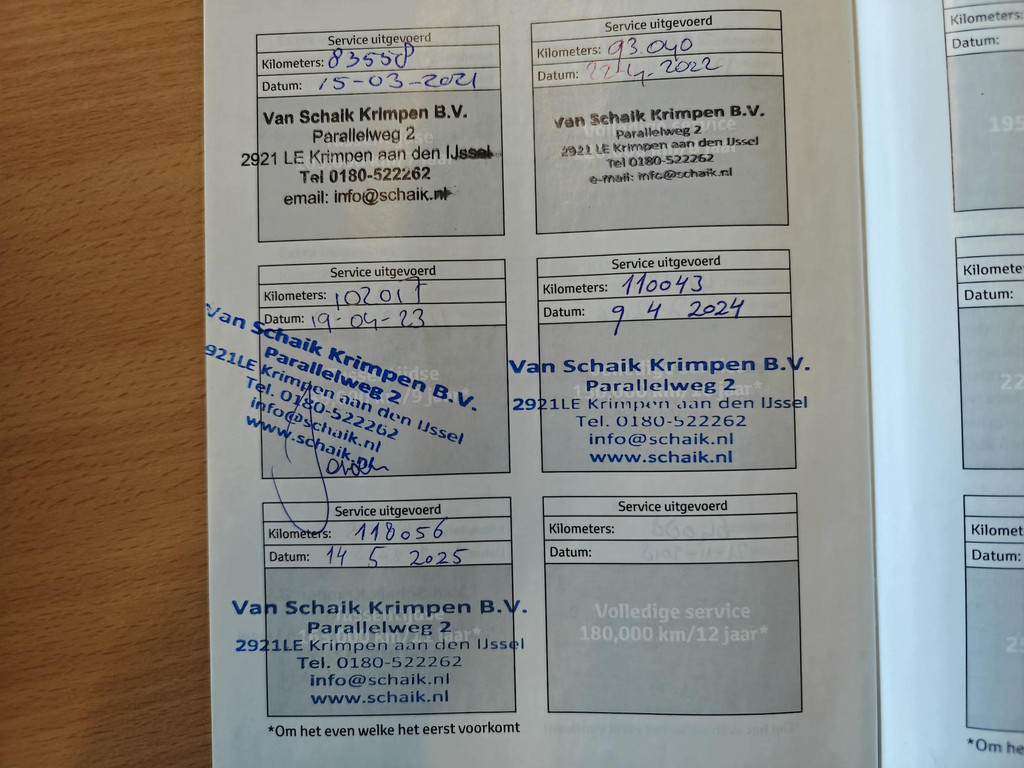 Service uitgevoerd
Kilometers: 83558
Datum: 15-03-2021
Van Schaik Krimpen B.V.
Parallelweg 2
2921 LE Krimpen aan den IJssel
Tel 0180-522262
email: info@schaik.nl
Service uitgevoerd
Kilometers: 93.040
Datum: 22 4 2022
Van Schaik Krimpen B.V.
Parallelweg 2
2921 LE Krimpen aan den IJssel
Tel 0180-522262
e-mail: info@schaik.nl
Service uitgevoerd
Kilometers: 102017
Datum: 19-04-23
Van Schaik Krimpen B.V.
Parallelweg 2
921LE Krimpen aan den IJssel
Tel. 0180-522262
info@schaik.nl
www.schaik.nl
Service uitgevoerd
Kilometers: 110043
Datum: 9 4 2024
Van Schaik Krimpen B.V.
Parallelweg 2
2921LE Krimpen aan den IJssel
Tel. 0180-522262
info@schaik.nl
www.schaik.nl
Service uitgevoerd
Kilometers: 118056
Datum: 14 5 2025
Van Schaik Krimpen B.V.
Parallelweg 2
2921LE Krimpen aan den IJssel
Tel. 0180-522262
info@schaik.nl
www.schaik.nl
Service uitgevoerd
Kilometers:
Datum:
Volledige service
180,000 km/12 jaar*
*Om het even welke het eerst voorkomt
Kilometers:
Datum:
195
Kilomete
Datum:
22
Kilomet
Datum:
25
*Om he